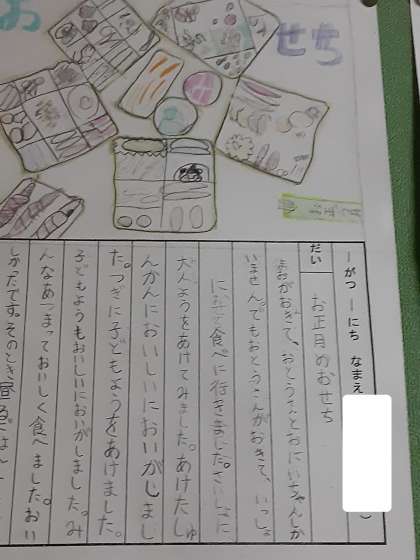 お せち
一がつ 一にち なまえ
だい お正月のおせち
おきて、おとうさんとおにいちゃんしか
いません。でもおとうさんがおきて、いっしょ
に食べに行きました。さいしょに
大人ようをあけてみました。あけたしゅ
んかんにおいしいにおいがしまし
た。つぎに子どもようをあけました。
子どもようもおいしいにおいがしました。み
んなあつまっておいしく食べました。おい
しかったです。そのとき